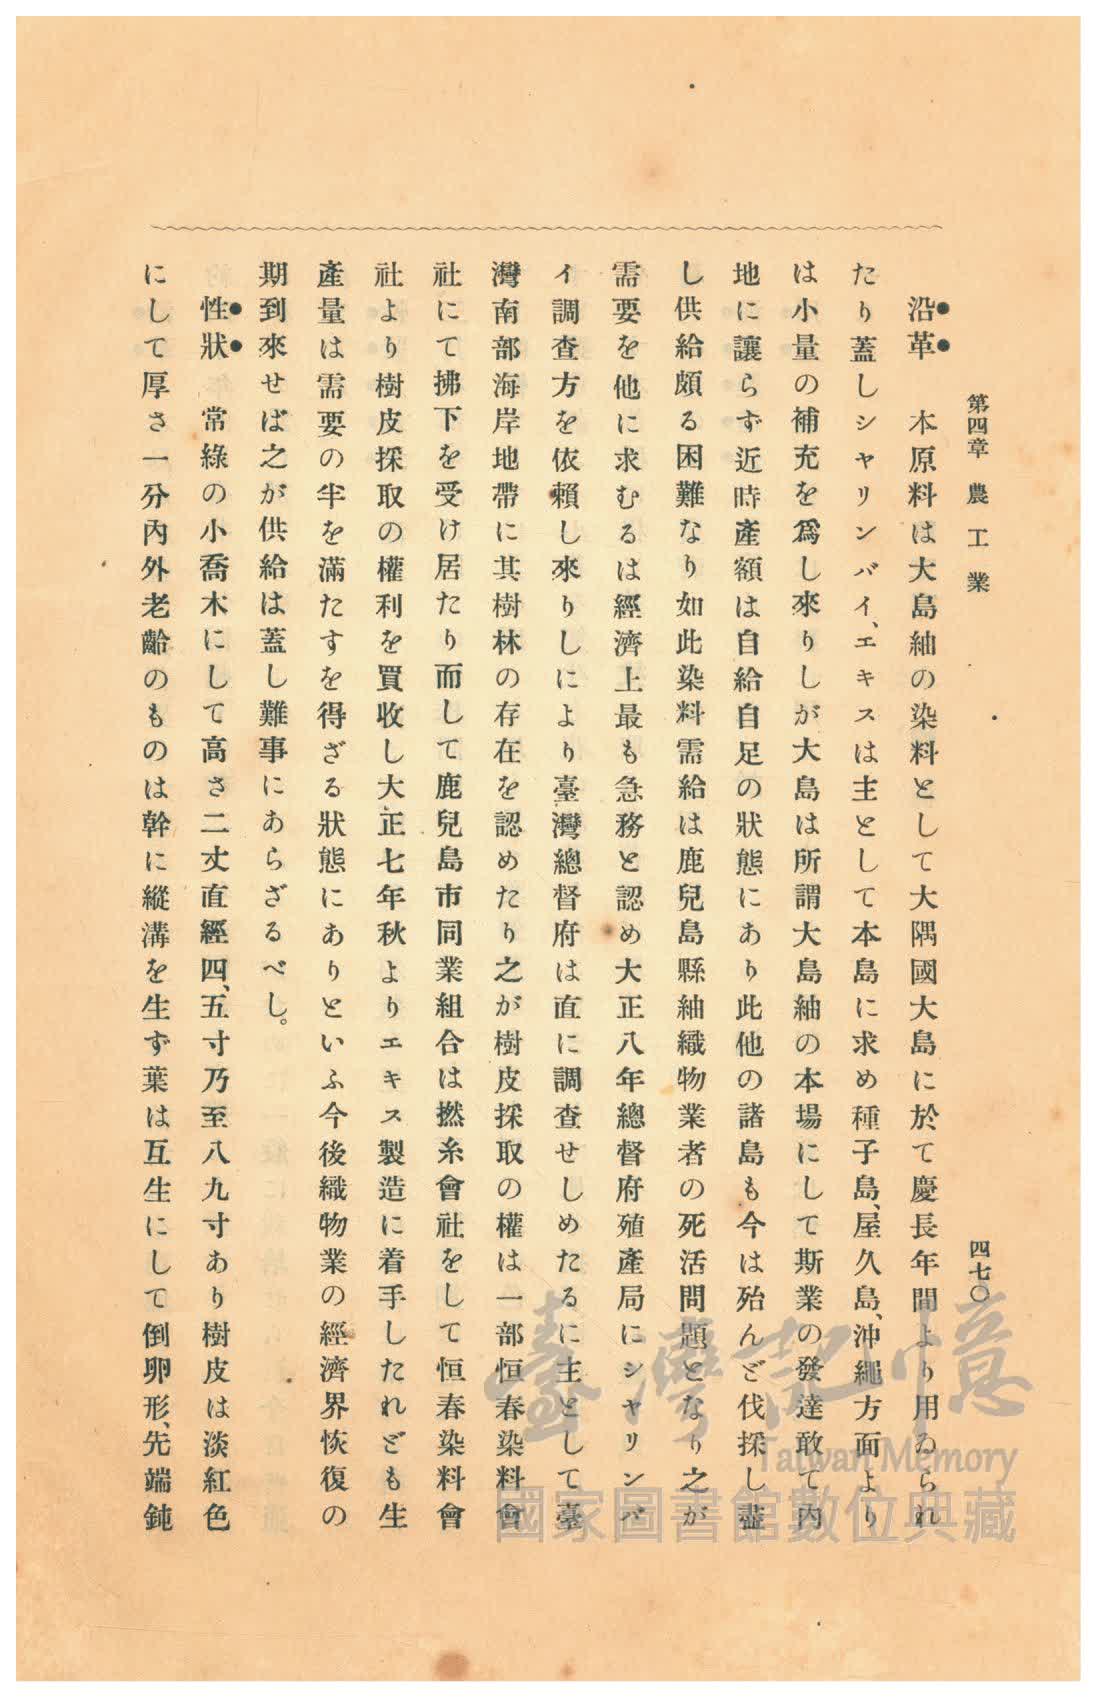 第四章　農工業
四七〇
沿革　本原料は大島紬の染料として大隅國大島に於て慶長年間より用ゐられ
たり蓋しシャリンバイ、エキスは主として本島に求め種子島、屋久島、沖繩方面より
は小量の補充を爲し來りしが大島は所謂大島紬の本場にして斯業の發達敢て内
地に讓らず近時產額は自給自足の狀態にあり此他の諸島も今は殆んど伐採し盡
し供給頗る困難なり如此染料需給は鹿兒島縣紬織物業者の死活問題となり之が
需要を他に求むるは經濟上最も急務と認め大正八年總督府殖產局にシャリンバ
イ調查方を依賴し來りしにより臺灣總督府は直に調查せしめたるに主として臺
灣南部海岸地帶に其樹林の存在を認めたり之が樹皮採取の權は一部恒春染料會
社にて拂下を受け居たり而して鹿兒島市同業組合は撚糸會社をして恒春染料會
社より樹皮採取の權利を買收し大正七年秋よりエキス製造に着手したれども生
產量は需要の半を滿たすを得ざる狀態にありといふ今後織物業の經濟界恢復の
期到來せば之が供給は蓋し難事にあらざるべし。
性狀　常綠の小喬木にして高さ二丈直經四、五寸乃至八九寸あり樹皮は淡紅色
にして厚さ一分內外老齡のものは幹に縱溝を生ず葉は互生にして倒卵形、先端鈍
臺灣記憶
Taiwan Memory
國家圖書館數位典藏